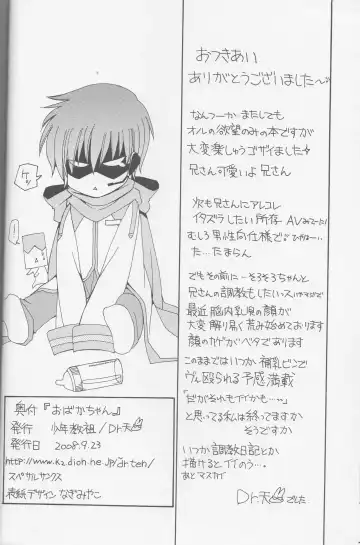 おつきあい
ありがとうございました〜
なんつーかまたしても
オルの欲望のみの本ですが
大変楽しゅうゴザイました
兄さん可愛いよ 兄さん
次も兄さんにアレコレ
イタズラしたい所存
むしろ男性向仕様で
た…たまらん
でもその前に…そろそろちゃんと
兄さんの調教もしたい
最近脳内乳臭の顔が
大変解り易く荒み始めております
このままではいつか哺乳ビンで
ヴん殴られる予感満載
「だがそれもイイかも…」
と思ってる私は終ってますか
そうですか
いつか調教日記とか
描けるとイイのう…
あとマスカイ
Dr.天でした
ケッ
奥付『おばかちゃん。』
発行 少年教祖/Dr天
発行日 2008.9.23
スペサルサンクス
表紙デザイン なぎみやこ